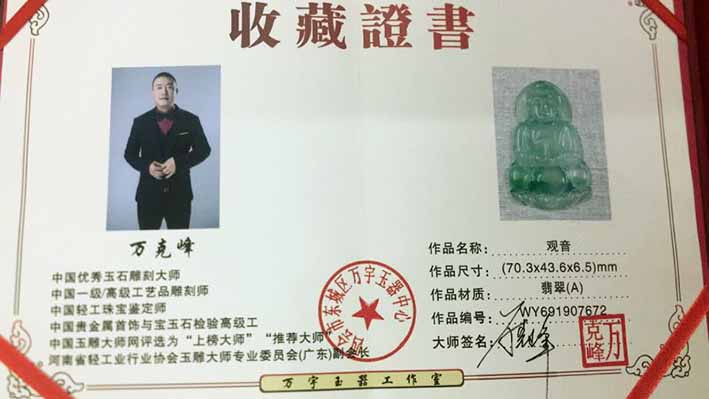 收藏證書
万克峰
中国优秀玉石雕刻大师
中国一级/高级工艺品雕刻师
中国轻工珠宝鉴定师
中国贵金属首饰与宝玉石检验高级工
中国玉雕大师网评选为“上榜大师”“推荐大师”
河南省轻工业行业协会玉雕大师专业委员会(广东)副会长
会市东城区万宇玉器中心
作品名称: 观音
作品尺寸: (70.3x43.6x6.5)mm
作品材质: 翡翠(A)
作品编号: WY691907672
大师签名:
万克峰
万宇玉器工作室